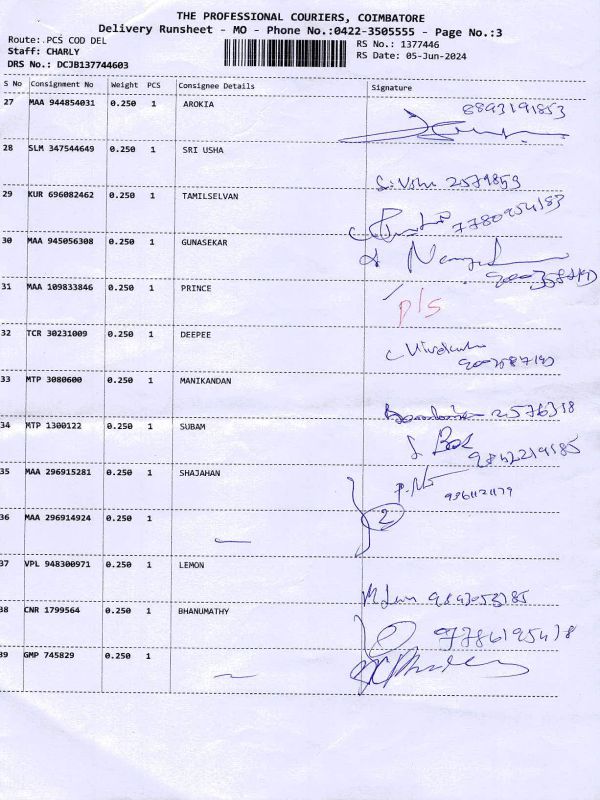 THE PROFESSIONAL COURIERS, COIMBATORE
Delivery Runsheet - MO - Phone No.:0422-3505555 - Page No.:3
Route: PCS COD DEL
RS No.: 1377446
Staff: CHARLY
RS Date: 05-Jun-2024
DRS No.: DCJB137744603
S No Consignment No Weight PCS Consignee Details Signature
27 MAA 944854031 0.250 1 AROKIA 8893191853
28 SLM 347544649 0.250 1 SRI USHA
2579853
29 KUR 696082462 0.250 1 TAMILSELVAN
30 MAA 945056308 0.250 1 GUNASEKAR
31 MAA 109833846 0.250 1 PRINCE
P/S
32 TCR 30231009 0.250 1 DEEPEE
33 MTP 3080600 0.250 1 MANIKANDAN
2576318
34 MTP 1300122 0.250 1 SUBAM
9842219185
35 MAA 296915281 0.250 1 SHAJAHAN
36 MAA 296914924 0.250 1 2
37 VPL 948300971 0.250 1 LEMON
9843053185
38 CNR 1799564 0.250 1 BHANUMATHY
39 GMP 745829 0.250 1